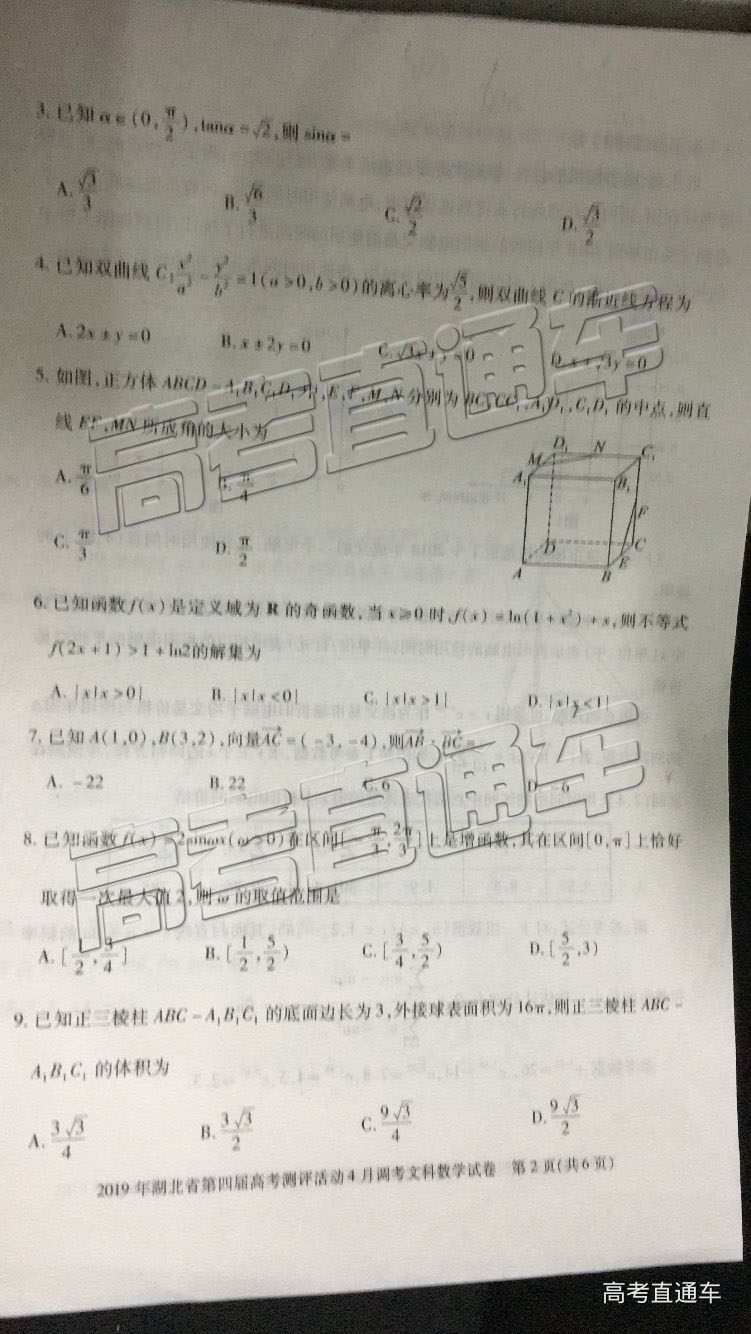 3. 已知 α∈(0, π/2), tanα=√2, 则 sinα=
A. √3/3 B. √6/3 C. √2/2 D. √3/2
4. 已知双曲线 C: x²/a² - y²/b² =1(a>0,b>0)的离心率为√5/2, 则双曲线 C 的渐近线方程为
A. 2x±y=0 B. x±2y=0 C. √3x±y=0 D. x±√3y=0
5. 如图,正方体 ABCD-A₁B₁C₁D₁ 中, E,F,M,N 分别为 BC,CC₁,A₁D₁,C₁D₁ 的中点,则直
线 EF,MN 所成角的大小为
A. π/6 B. π/4
C. π/3 D. π/2
D₁ N C₁
M
A₁ B₁
F
D C
E
A B
6. 已知函数 f(x) 是定义域为 R 的奇函数,当 x≥0 时, f(x)=ln(1+x²)+x,则不等式
f(2x+1)>1+ln2的解集为
A. {x|x>0} B. {x|x<0} C. {x|x>1} D. {x|x<1}
7. 已知 A(1,0), B(3,2), 向量AC=(-3,-4), 则AB·BC=
A. -22 B. 22 C. 6 D. -6
8. 已知函数 f(x)=2sinωx(ω>0)在区间[-π/4, 2π/3]上是增函数,其在区间[0,π]上恰好
取得一次最大值 2,则 ω 的取值范围是
A. [1/2, 3/4] B. [1/2, 5/2) C. [3/4, 5/2) D. [5/2, 3)
9. 已知正三棱柱 ABC-A₁B₁C₁ 的底面边长为 3,外接球表面积为 16π,则正三棱柱 ABC-
A₁B₁C₁ 的体积为
A. 3√3/4 B. 3√3/2 C. 9√3/4 D. 9√3/2
2019 年湖北省第四届高考测评活动 4 月调考文科数学试卷 第 2 页(共 6 页)
高考直通车
高考直通车
高考直通车